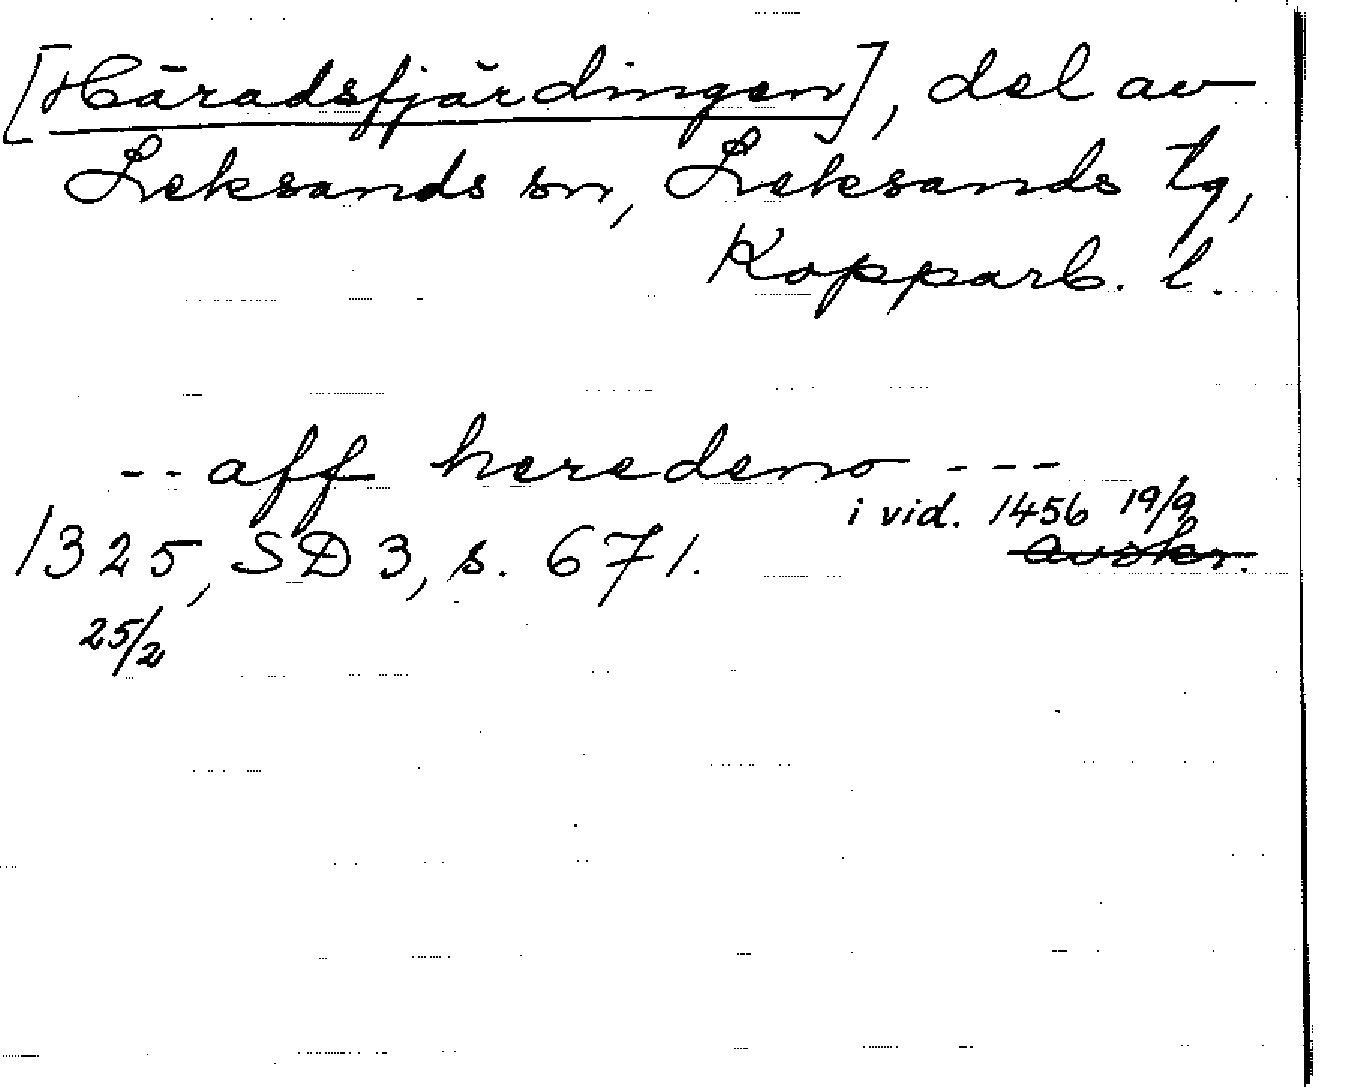 [Häradsfjärdingen], del av
Leksands sn, Leksands tg,
Kopparb. l.
-- aff heredeno ---
i vid. 1456 19/9
1325, SD 3, s. 671. Avskr.
25/2